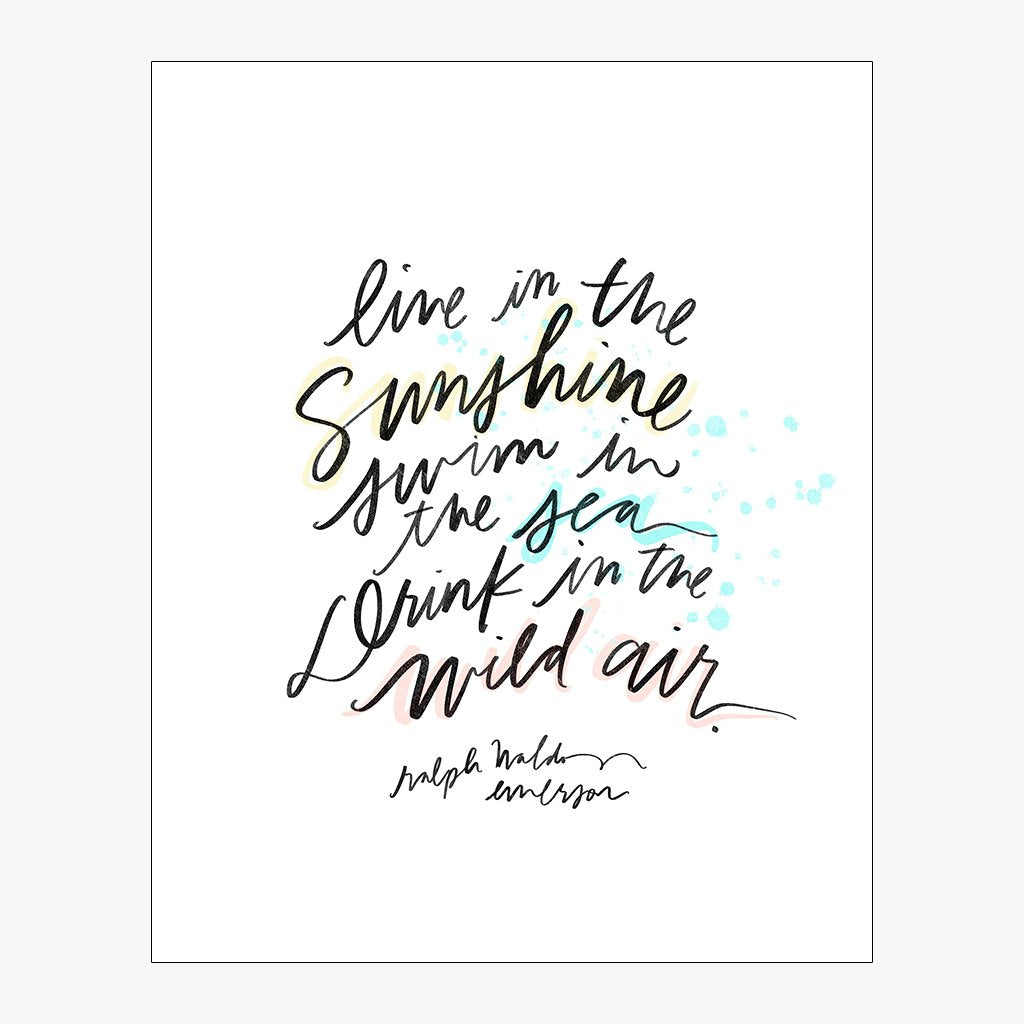 live in the
Sunshine
swim in
the sea
Drink in the
wild air.
ralph waldo
emerson